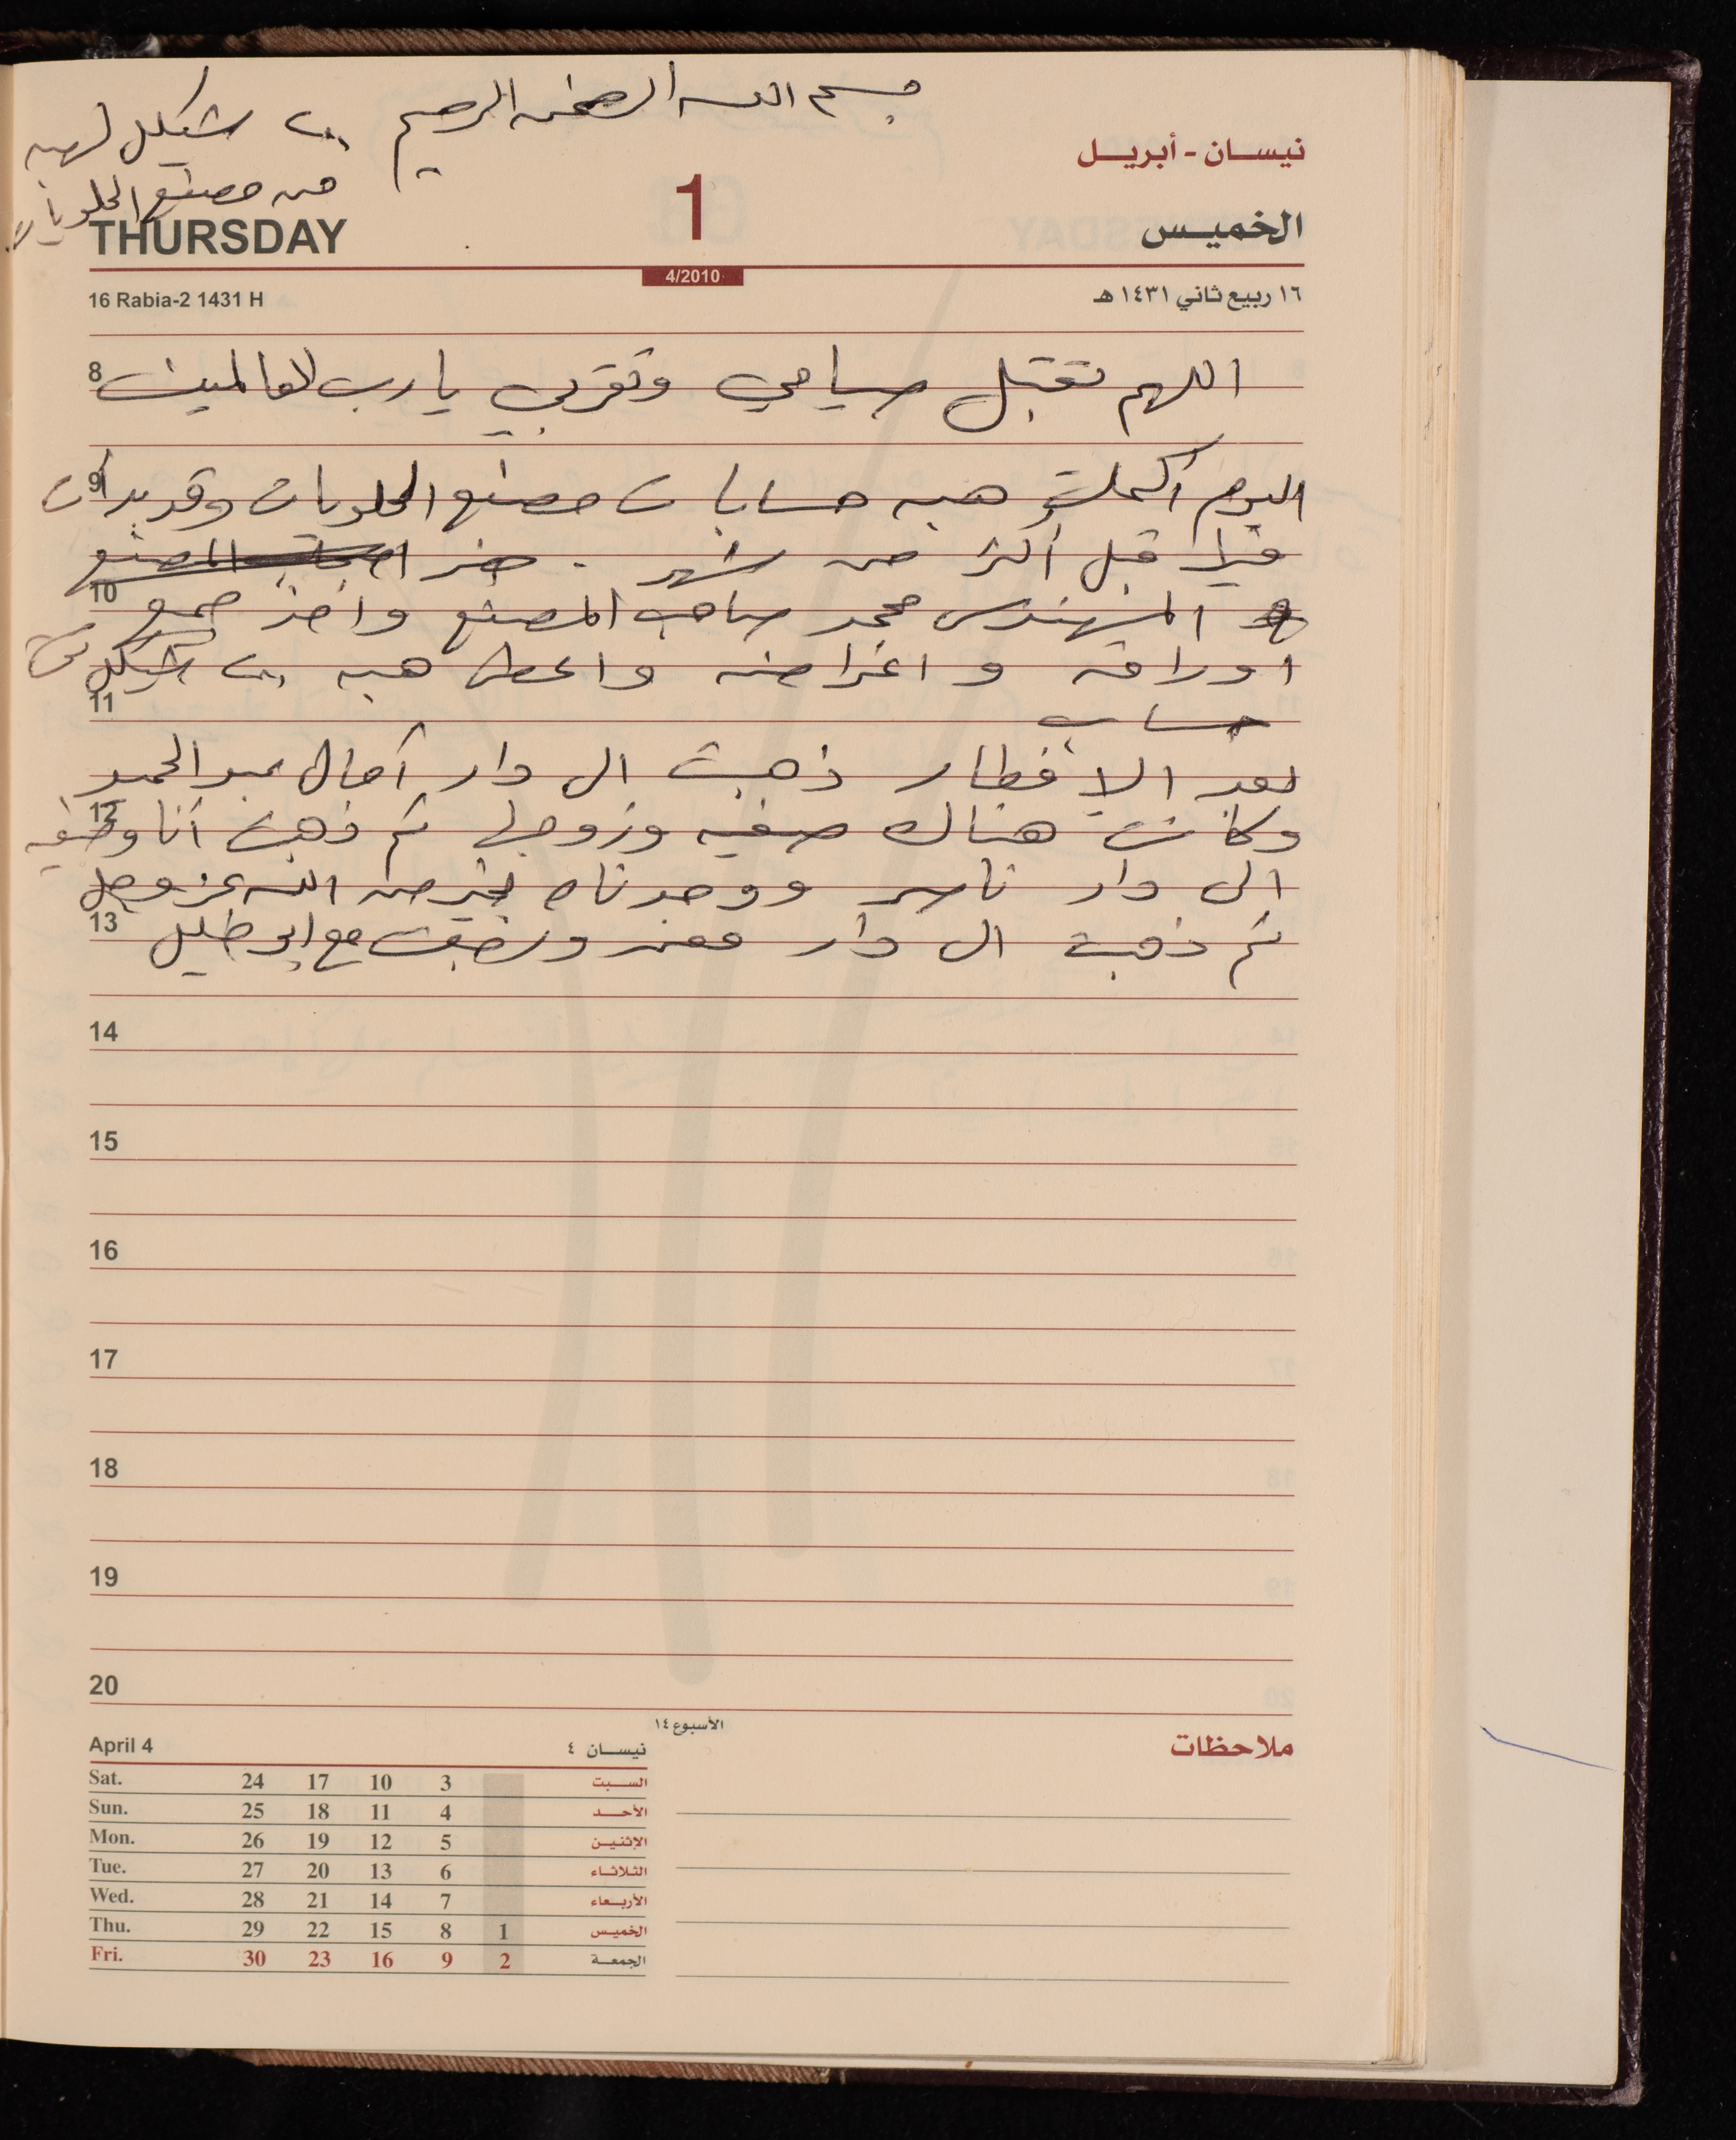 بسم الله الرحمن الرحيم
٢٠٠ شيكل لهبه
من مصنع الحلويات
نيسان - أبريل
1
THURSDAY
الخميس
4/2010
16 Rabia-2 1431 H
١٦ ربيع ثاني ١٤٣١ هـ
8 اللهم تقبل صيامي وتقربي يا رب العالمين
9 اليوم أكملت هبه حسابات مصنع الحلويات وقد بدأت
فيها قبل أكثر من شهر . حضر المصنع
10 المهندس محمد صاحب المصنع واخذ جميع
اوراقه و اغراضه واعطى هبه ٢٠٠ شيكل
11 حساب
بعد الإفطار ذهبت الى دار آمال عبد الحميد
12 وكانت هناك صفيه وزوجها ثم ذهبت أنا وصفيه
الى دار ناسر ووجدناه بخير من الله عز وجل
13 ثم ذهبت الى دار معمر ورجعت مع ابو خليل
14
15
16
17
18
19
20
الأسبوع ١٤
ملاحظات
April 4 نيسان ٤
Sat. 24 17 10 3 السبت
Sun. 25 18 11 4 الأحد
Mon. 26 19 12 5 الإثنين
Tue. 27 20 13 6 الثلاثاء
Wed. 28 21 14 7 الأربعاء
Thu. 29 22 15 8 1 الخميس
Fri. 30 23 16 9 2 الجمعة